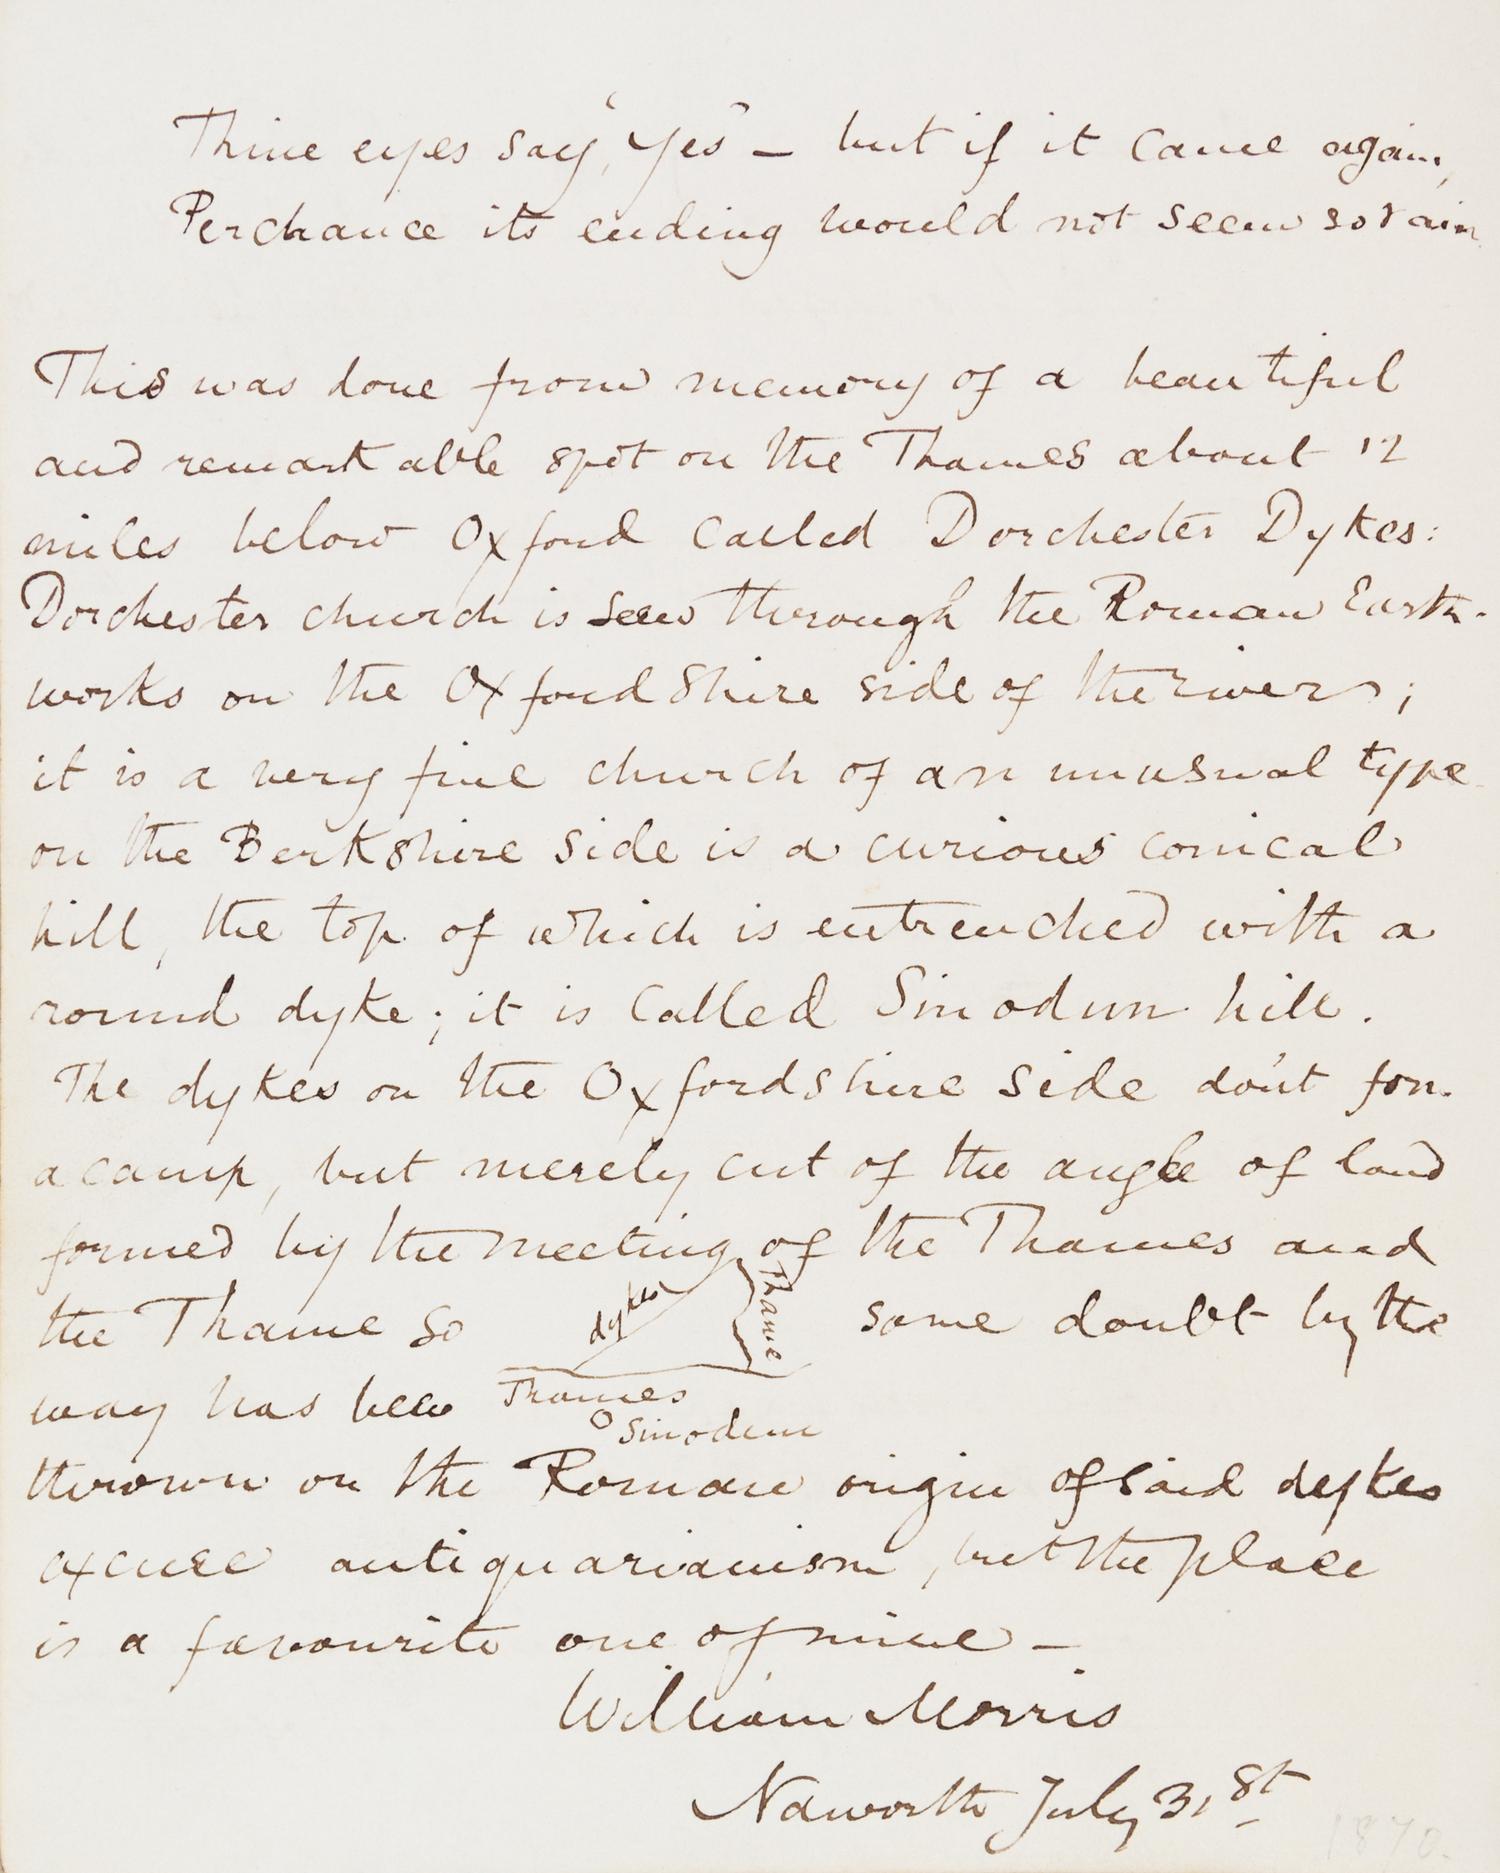 Thine eyes say, 'yes' – but if it came again,
Perchance its ending would not seem so vain
This was done from memory of a beautiful
and remarkable spot on the Thames about 12
miles below Oxford called Dorchester Dykes:
Dorchester church is seen through the Roman Earth-
works on the Oxfordshire side of the river;
it is a very fine church of an unusual type
on the Berkshire side is a curious conical
hill, the top of which is entrenched with a
round dyke; it is called Sinodun hill.
The dykes on the Oxfordshire side don't form
a camp, but merely cut of the angle of land
formed by the meeting of the Thames and
the Thame so
dykes
Thame
some doubt by the
way has been
Thames
Sinodun
thrown on the Roman origin of said dykes
excuse antiquarianism, but the place
is a favourite one of mine –
William Morris
Naworth July 31st
1870.